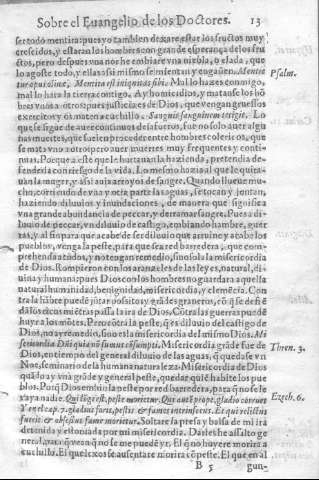 Sobre el Euangelio de los Doctores. 13
ser todo mentira: pues yo tambien dexare estar los fructos muy
crescidos, y estaran los hombres con grande esperança de los fru
ctos, pero despues vna noche embiare vna niebla, o elada, que
lo agoste todo, y ellas assi mismo se mientan y engañen. Mentita
est iniquitas sibi. Mul lo hazes conmigo, Psalm.
mal lo hara la tierra contigo. Ay homicidios, y matanse los hõ
bres vnos a otros: pues justicia es de Dios, que vengan gruessos
exercitos y os maten a cuchillo. Sanguis sanguinem tetigit. Lo
que se sigue de auer continuos desafueros, fue no solo auer algu
nas muertes, que suelen proceder entre hombres colericos, que
se mata vno a otro: pero auer muertes muy frequentes y conti-
nuas. Porque a este que le hurtauan la hazienda, pretendia de-
fenderla con riesgo de la vida. Lo mesmo hazia al que le quita-
uan la muger, y assi auia arroyos de sangre. Quando llueue mu-
cho, corriendo de vna y otra parte las aguas, se tocan y juntan,
haziendo diluuios y inundaciones, de manera que significa
vna grande abundancia de peccar, y derramar sangre. Pues a di-
luuio de peccar, vn diluuio de castigo, embiando hambre, guer
ras, y al fin para que acabe de ser diluuio que arruine y acabe los
pueblos, venga la peste, para que sea red barredera, que com-
prehenda a todos, y no tengan remedio, sino sola la misericordia
de Dios. Rompieron con los aranzeles de las leyes, natural, di-
uina y humana: pues Dios con los hombres no guardara aquella
natural humanidad, benignidad, misericordia, y clemẽcia. Con
tra la hãbre puede jũtar positos y grãdes graneros, cõ q̃ se defiẽ
dã los ricos miẽtras passa la ira de Dios. Cõtra las guerras puedẽ
huyr a los mõtes. Pero cõtra la peste, q̃ es diluuio del castigo de
Dios, no ay remedio, sino es la misericordia del mismo Dios. Mi
sericordia Dñi quia nõ sumus cõsumpti. Misericordia grãde fue de Thren. 3.
Dios, en tiempo del general diluuio de las aguas, q̃ quedase vn
Noe, seminario de la humana naturaleza. Misericordia de Dios
quãdo ay vna grãde y general peste, quedar quiẽ habite los pue
blos. Porq̃ Dios embia la peste por red barredera, para q̃ no se le
vaya nadie. Qui longe est, peste morietur. Qui autẽ prope, gladio corruet Ezech. 6.
Y en el cap. 7. gladius foris, pestis & fames intrinsecus. Et qui relictus
fuerit & obsessus fame morietur. Soltare la presa y bolsa de mi ira
detenida y estoruada por mi misericordia. Darles he assalto ge
neral, para q̃ vea q̃ no se me puede yr. El q̃ no huyere morira a
cuchillo. El que lexos se ausentare morira cõ peste. El que en al
B 5 gun-